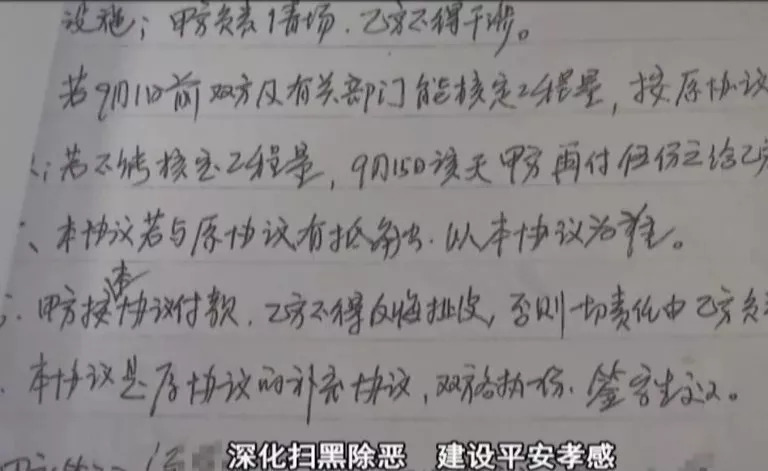 设施；甲方负责清场，乙方不得干涉。
若9月1日前双方及有关部门能核定工程量，按原协议
若不能核定工程量，9月15日该天甲方再付伍份之给乙
、本协议若与原协议有抵触，以本协议为准。
甲方按本协议付款，乙方不得反悔扯皮，否则一切责任由乙方负
本协议是原协议的补充协议，双方各执一份，签字生效。
深化扫黑除恶 建设平安孝感